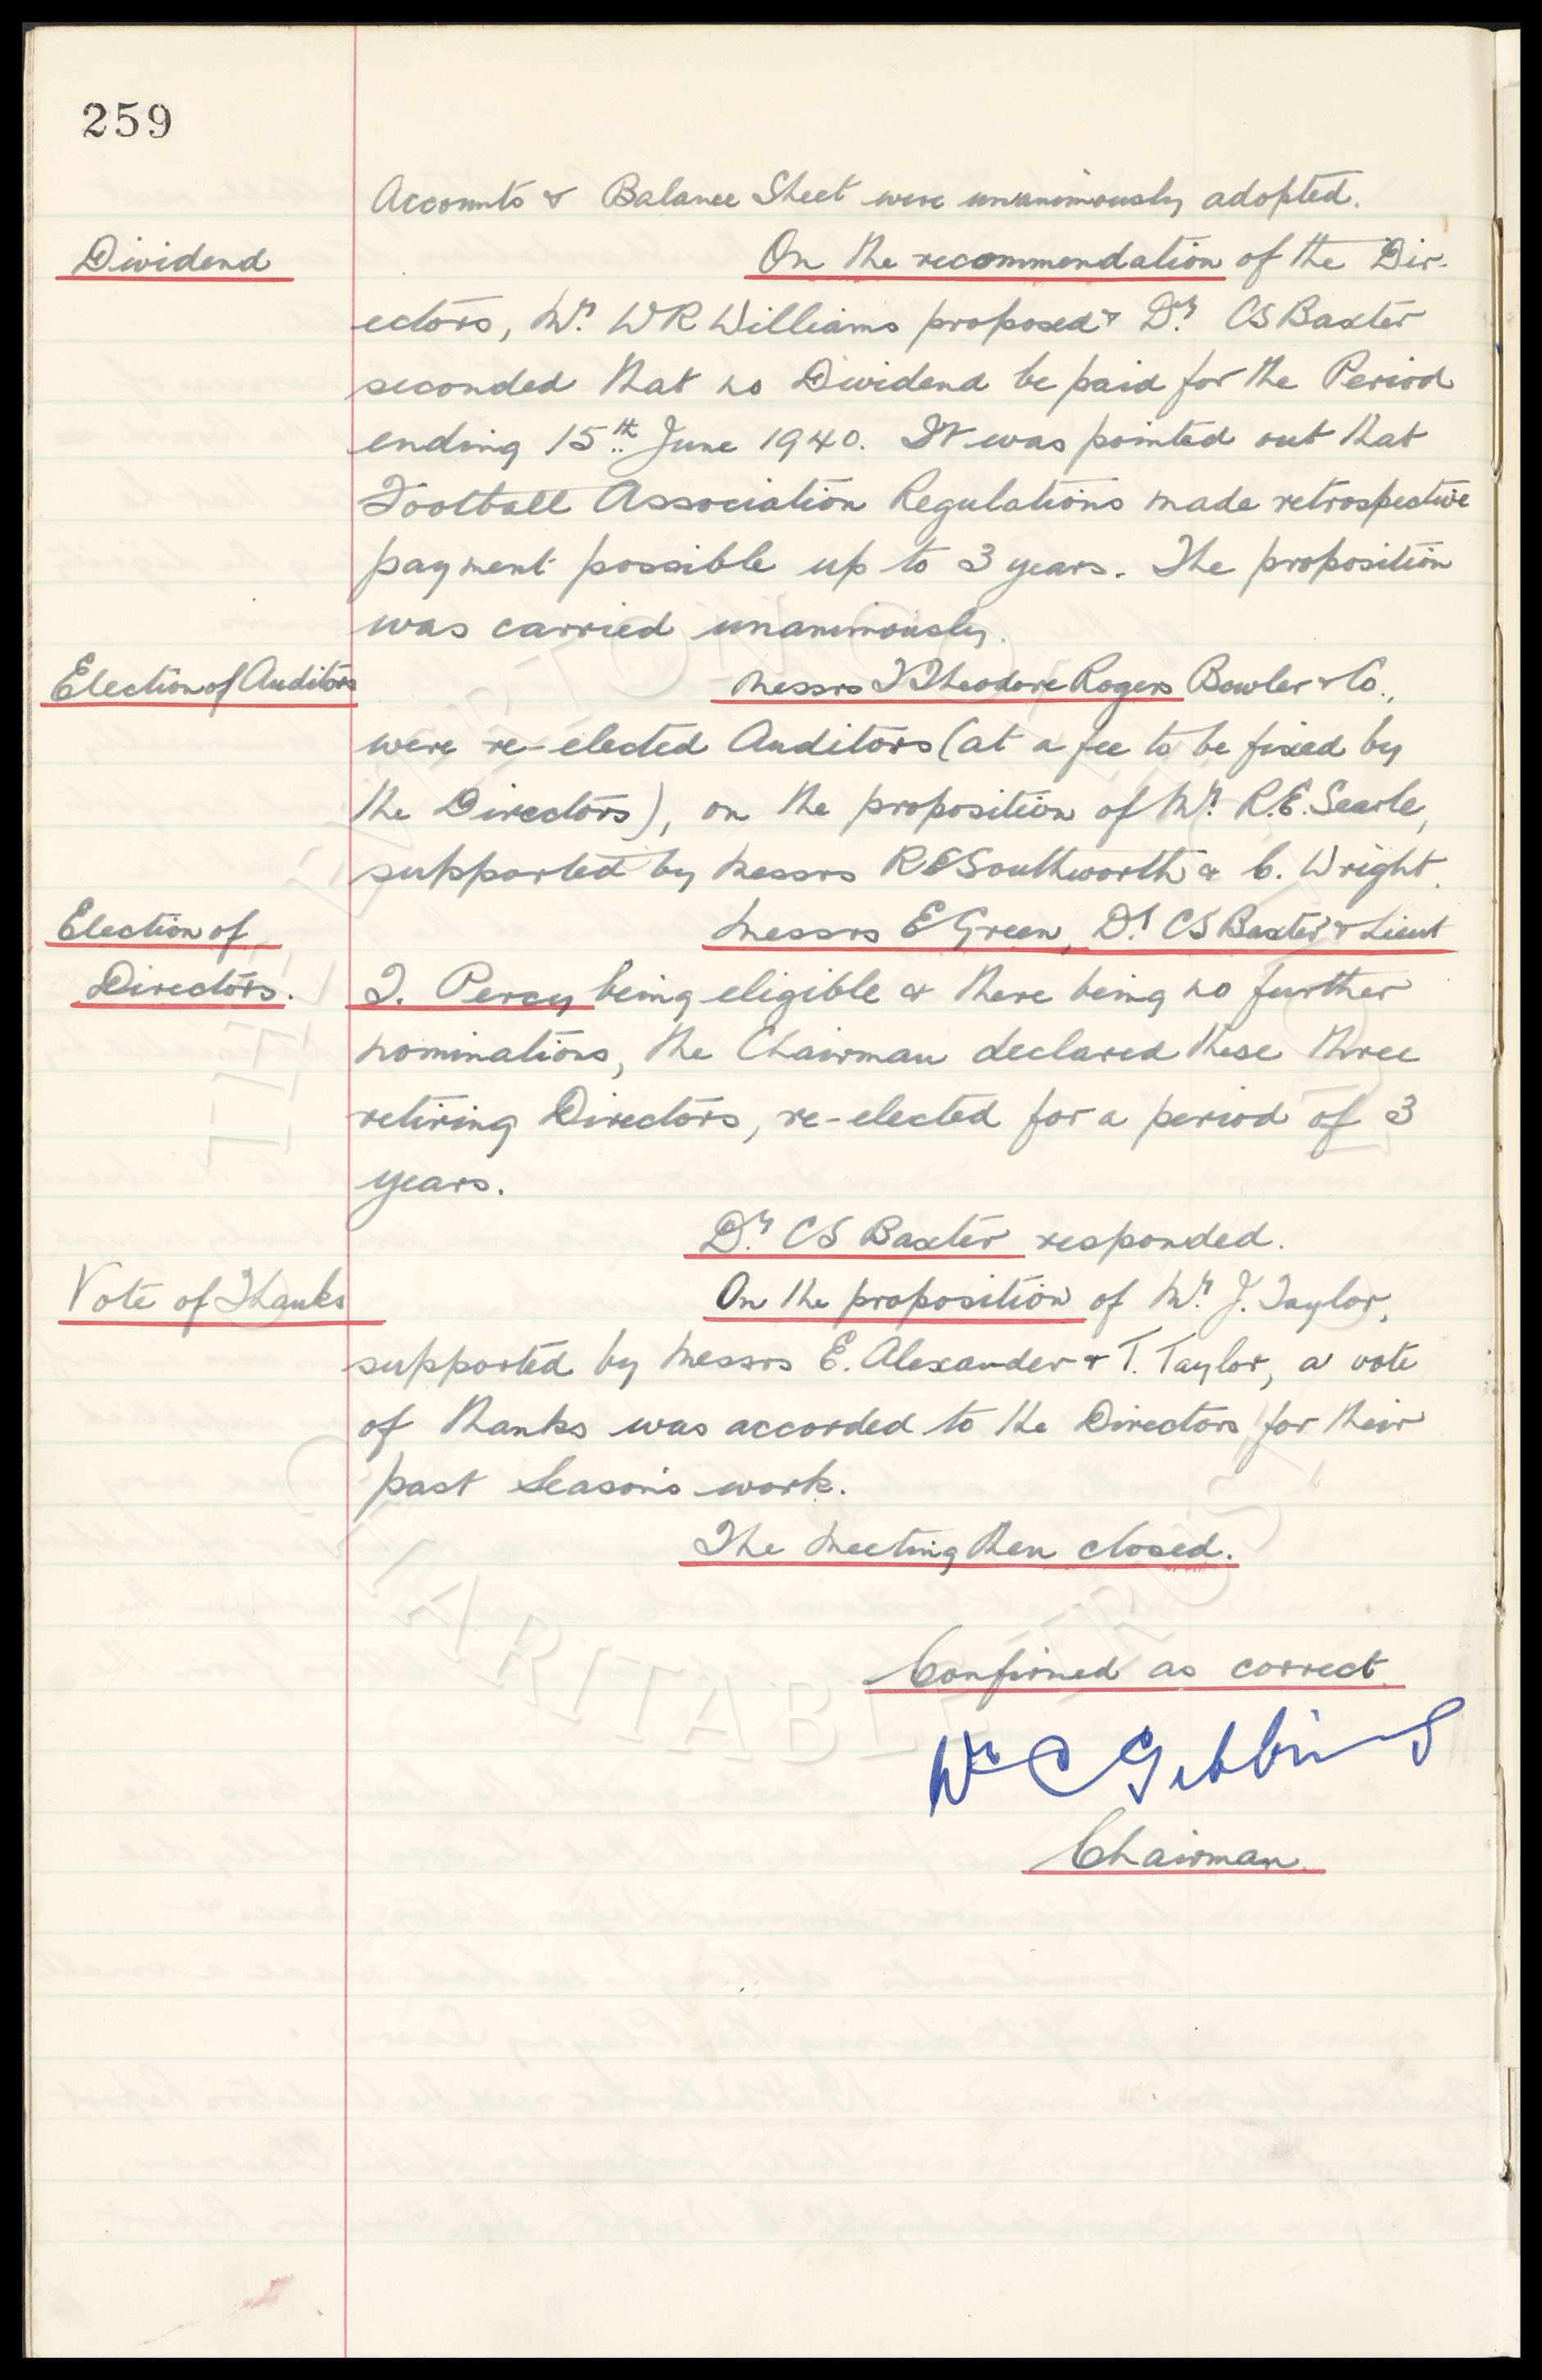 259
Accounts & Balance Sheet were unanimously adopted.
Dividend
On the recommendation of the Dir-
ectors, Mr. WR Williams proposed & Dr. CS Baxter
seconded that no Dividend be paid for the Period
ending 15th June 1940. It was pointed out that
Football Association Regulations made retrospective
payment possible up to 3 years. The proposition
was carried unanimously.
Election of Auditors
Messrs Theodore Rogers Bowler & Co.,
were re-elected Auditors (at a fee to be fixed by
the Directors), on the proposition of Mr. R.E. Searle,
supported by Messrs RE Southworth & C. Wright.
Election of
Directors.
Messrs E Green, Dr. CS Baxter & Lieut
T. Percy being eligible & there being no further
nominations, the Chairman declared these three
retiring Directors, re-elected for a period of 3
years.
Dr. CS Baxter responded.
Vote of Thanks
On the proposition of Mr. J. Taylor,
supported by Messrs E. Alexander & T. Taylor, a vote
of thanks was accorded to the Directors for their
past Season's work.
The Meeting then closed.
Confirmed as correct.
Wm C Gibbins
Chairman.
EVERTON COLLECTION
CHARITABLE TRUST